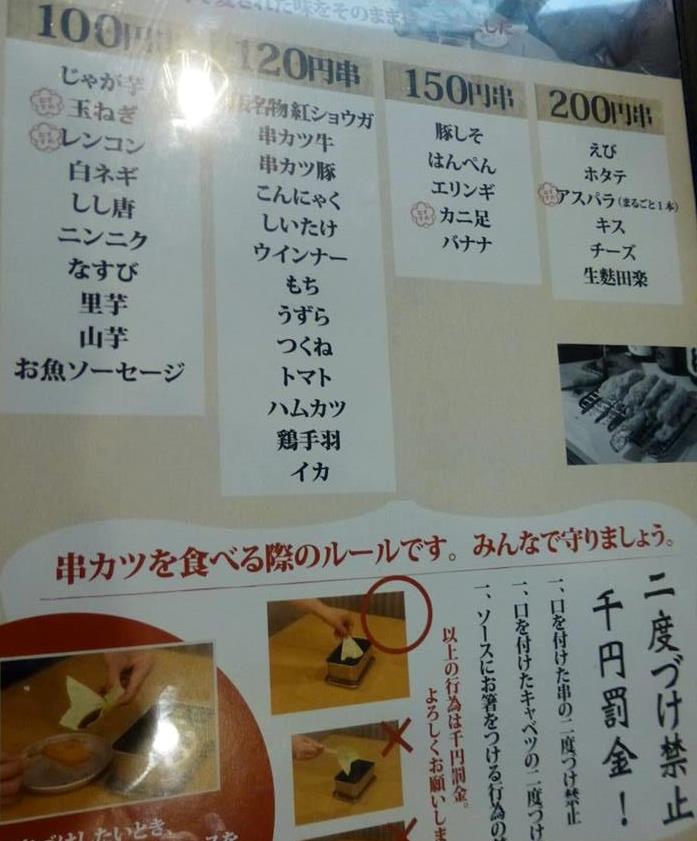 された味をそのまま
100円
じゃが芋
おすすめ 玉ねぎ
おすすめ レンコン
白ネギ
しし唐
ニンニク
なすび
里芋
山芋
お魚ソーセージ
120円串
名物 紅ショウガ
串カツ牛
串カツ豚
こんにゃく
しいたけ
ウインナー
もち
うずら
つくね
トマト
ハムカツ
鶏手羽
イカ
150円串
豚しそ
はんぺん
エリンギ
おすすめ カニ足
バナナ
200円串
えび
ホタテ
おすすめ アスパラ(まるごと1本)
キス
チーズ
生麩田楽
串カツを食べる際のルールです。みんなで守りましょう。
二度づけ禁止
千円罰金!
一、口を付けた串の二度づけ禁止
一、口を付けたキャベツの二度づけ
一、ソースにお箸をつける行為の
以上の行為は千円罰金。
よろしくお願いしま
づけしたいとき、
スを